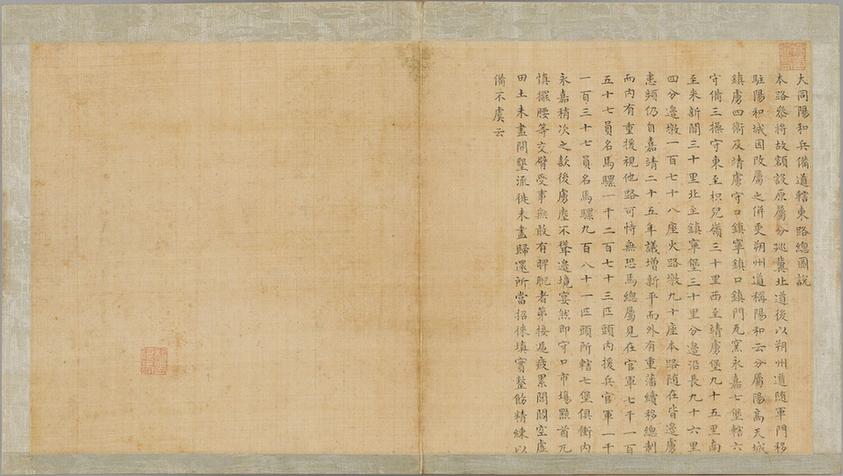 大同陽和兵備道轄東路總圖說
本路參將故額設原屬分巡冀北道後以朔州道隨軍門移
駐陽和城因改屬之併更朔州道稱陽和云分屬陽高天城
鎮虜四衛及靖虜守口鎮寧鎮口鎮門瓦窯永嘉七堡轄六
守備三操守東至枳兒嶺三十里西至靖虜堡九十五里南
至米新關三十里北至鎮寧堡三十里分邊沿長九十六里
四分邊墩一百七十八座火路墩九十座本路隨在皆邊虜
患頻仍自嘉靖二十五年議增新平而外有重藩續移總制
而內有重援視他路可恃無恐馬總屬見在官軍七千一百
五十七員名馬騾一千二百七十三匹頭內援兵官軍一千
一百三十七員名馬騾九百八十一匹頭所轄七堡俱衝內
永嘉稍次之款後虜塵不聳邊境宴然即守口市場黠酋兀
慎擺腰等交臂受事無敢有睥睨者第接遞疲累閭閻空虛
田土未盡開墾流徙未盡歸還所當招徠填實整飭精練以
備不虞云